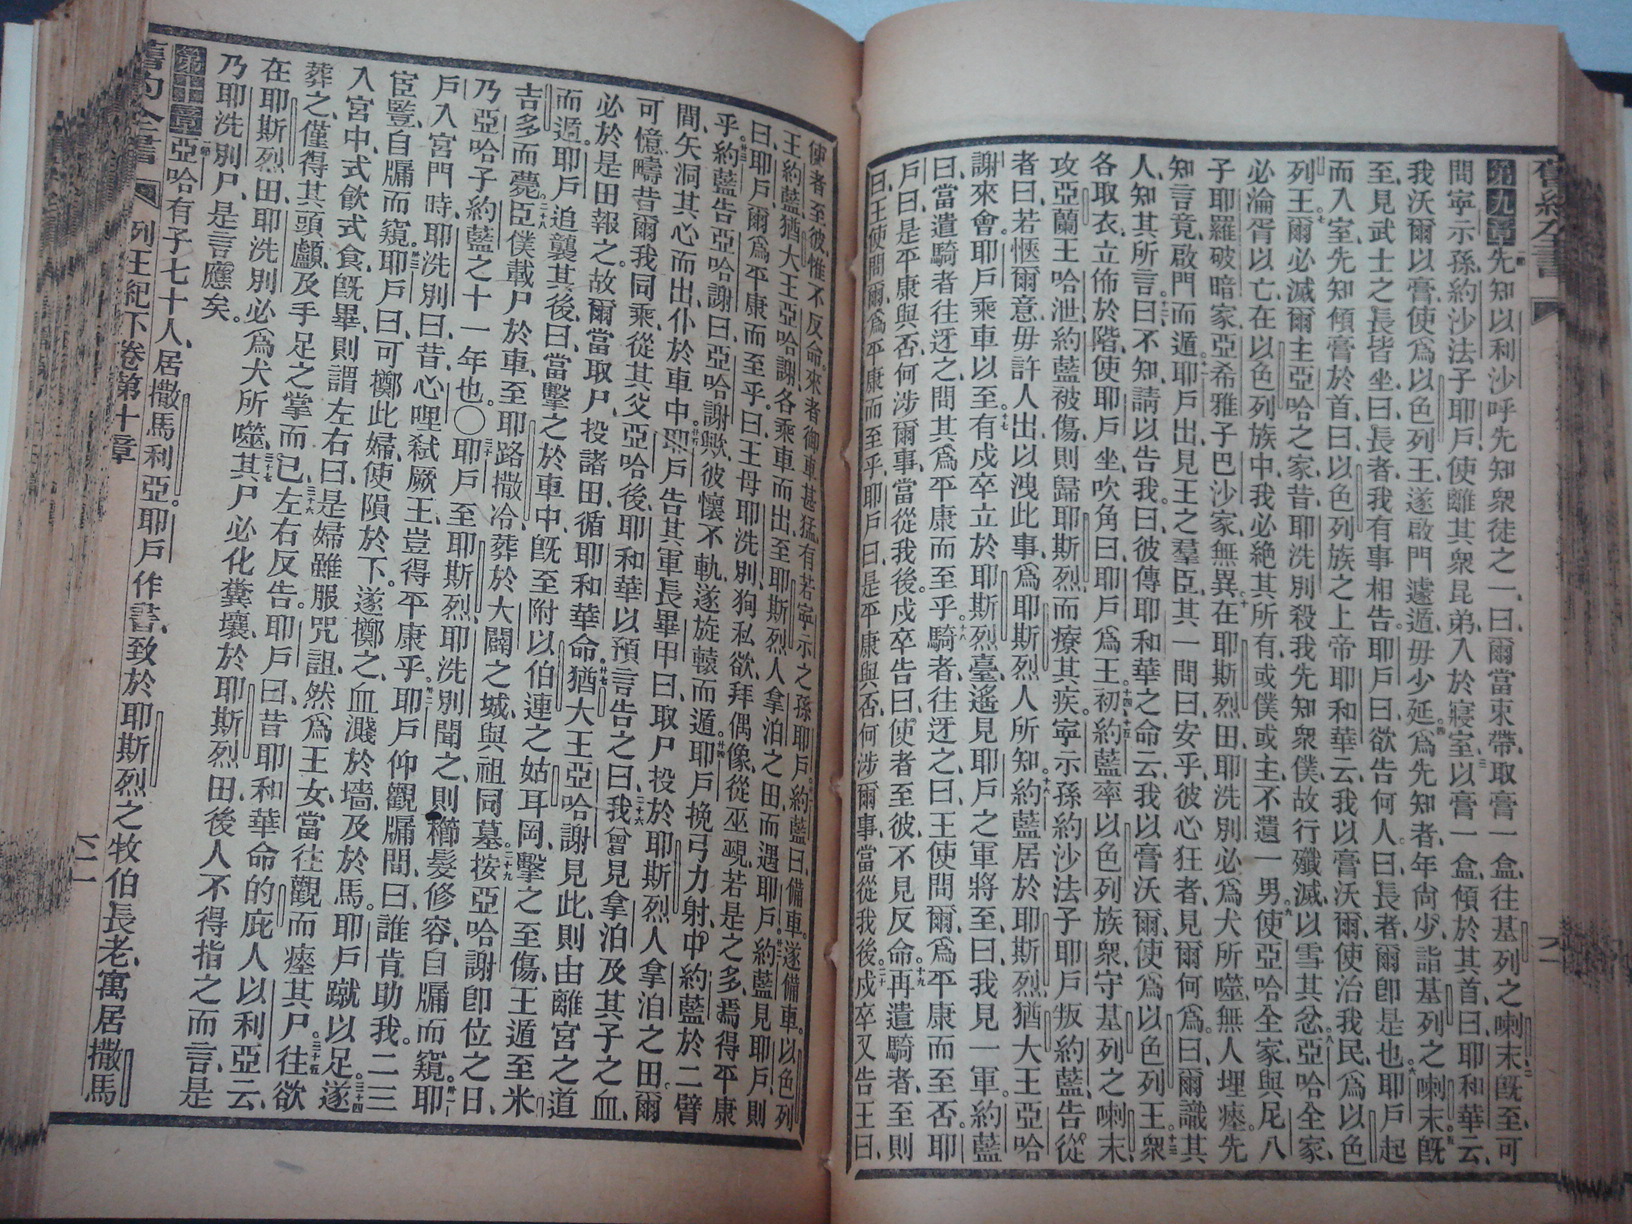 舊約全書
第九章 先知以利沙呼先知衆徒之一、曰、爾當束帶、取膏一盒、往基列之喇末、既至、可
問寧示孫約沙法子耶戶、使離其衆昆弟、入於寢室、以膏一盒、傾於其首、曰、耶和華云、
我沃爾以膏、使爲以色列王、遂啟門遽遁、毋少延。爲先知者、年尙少、詣基列之喇末、既
至、見武士之長皆坐、曰、長者、我有事相告。耶戶曰、欲告何人。曰、長者、爾卽是也。耶戶起
而入室、先知傾膏於首、曰、以色列族之上帝耶和華云、我以膏沃爾、使治我民、爲以色
列王。爾必滅爾主亞哈之家、昔耶洗別殺我先知衆僕、故行殲滅、以雪其忿。亞哈全家、
必淪胥以亡、在以色列族中、我必絕其所有、或僕或主、不遺一男。使亞哈全家、與尼八
子耶羅破暗家、亞希雅子巴沙家無異。在耶斯烈田、耶洗別必爲犬所噬、無人埋瘞。先
知言竟、啟門而遁。耶戶出見王之羣臣、其一問曰、安乎、彼心狂者、見爾何爲。曰、爾識其
人、知其所言。曰、不知、請以告我。曰、彼傳耶和華之命云、我以膏沃爾、使爲以色列王。衆
各取衣、立佈於階、使耶戶坐、吹角曰、耶戶爲王。初約藍率以色列族衆、守基列之喇末、
攻亞蘭王哈泄、約藍被傷、則歸耶斯烈、而療其疾。寧示孫約沙法子耶戶叛約藍、告從
者曰、若愜爾意、毋許人出、以洩此事、爲耶斯烈人所知。約藍居於耶斯烈、猶大王亞哈
謝來會。耶戶乘車以至。有戍卒立於耶斯烈臺、遙見耶戶之軍將至、曰、我見一軍。約藍
曰、當遣騎者往迓之、問其爲平康而至乎。騎者往迓之、曰、王使問爾、爲平康而至否。耶
戶曰、是平康與否、何涉爾事、當從我後。戍卒告曰、使者至彼、不見反命。再遣騎者、至則
曰、王使問爾、爲平康而至乎。耶戶曰、是平康與否、何涉爾事、當從我後。戍卒又告王曰、
使者至彼、惟不反命。來者御車甚猛、有若寧示之孫耶戶。約藍曰、備車。遂備車。以色列
王約藍、猶大王亞哈謝、各乘車而出、至耶斯烈人拿泊之田、而遇耶戶。約藍見耶戶、則
曰、耶戶、爾爲平康而至乎。曰、王母耶洗別、狥私欲、拜偶像、從巫覡、若是之多、焉得平康
乎。約藍告亞哈謝曰、亞哈謝歟、彼懷不軌、遂旋轅而遁。耶戶挽弓力射、中約藍於二臂
間、矢洞其心而出、仆於車中。耶戶告其軍長畢甲曰、取尸投於耶斯烈人拿泊之田。爾
可憶疇昔、爾我同乘、從其父亞哈後、耶和華以預言告之曰、我曾見拿泊及其子之血、
必於是田報之。故爾當取尸、投諸田、循耶和華命。猶大王亞哈謝見此、則由離宮之道
而遁。耶戶追襲其後、曰、當擊之於車中、旣至附以伯連之姑耳岡、擊之至傷、王遁至米
吉多而薨。臣僕載尸於車、至耶路撒冷、葬於大闢之城、與祖同墓。按亞哈謝卽位之日、
乃亞哈子約藍之十一年也。〇耶戶至耶斯烈、耶洗別聞之、則櫛髮修容、自牖而窺。耶
戶入宮門時、耶洗別曰、昔心哩弒厥王、豈得平康乎。耶戶仰觀牖間、曰、誰肯助我。二三
宦豎、自牖而窺。耶戶曰、可擲此婦、使隕於下。遂擲之、血濺於墻、及於馬。耶戶蹴以足、遂
入宮中、式飲式食、旣畢、則謂左右曰、是婦雖服咒詛、然爲王女、當往觀而瘞其尸。往欲
葬之、僅得其頭顱、及手足之掌而已。左右反告。耶戶曰、昔耶和華命的庇人以利亞云、
在耶斯烈田、耶洗別必爲犬所噬。其尸必化糞壤、於耶斯烈田、後人不得指之而言、是
乃耶洗別尸、是言應矣。
第十章 亞哈有子七十人、居撒馬利亞。耶戶作書、致於耶斯烈之牧伯長老、寓居撒馬
舊約全書 列王紀下卷 第十章